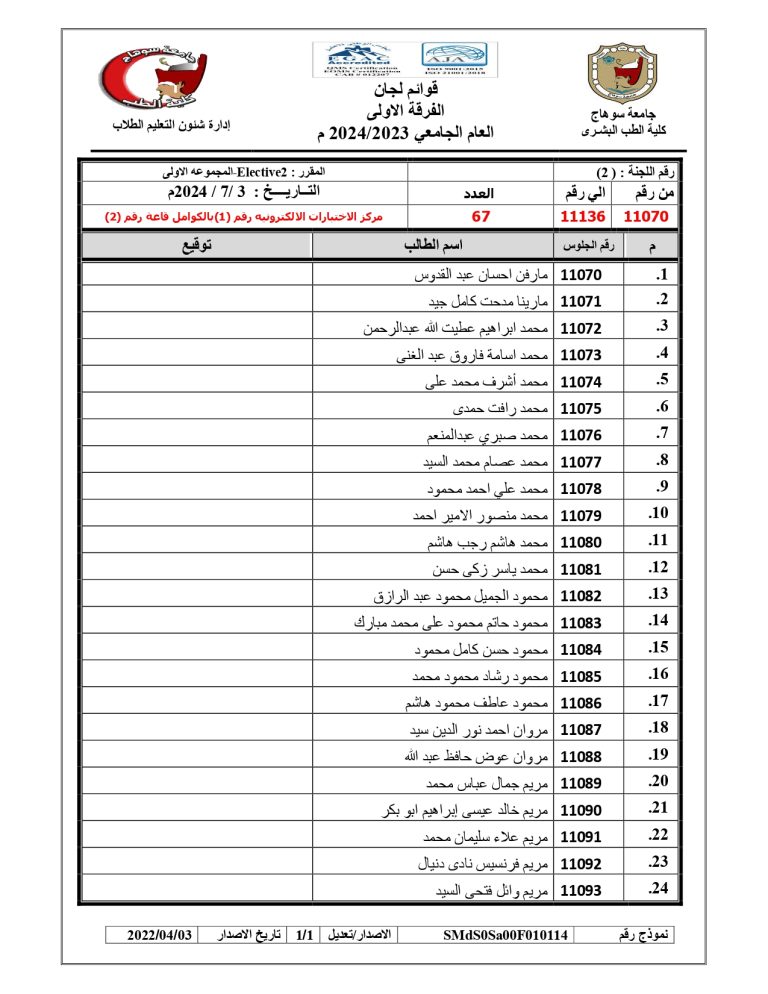 جامعة سوهاج
كلية الطب
EGAC
Accredited
QMS Certification
EOMS Certification
CAB # 012207
AJA
ISO 9001:2015
ISO 21001:2018
جامعة سوهاج
كلية الطب البشرى
قوائم لجان
الفرقة الاولى
العام الجامعي 2024/2023 م
إدارة شئون التعليم الطلاب
رقم اللجنة : ( 2) المقرر : Elective2-المجموعه الاولى
من رقم الي رقم العدد التــاريــــخ : 3 /7 / 2024م
11070 11136 67 مركز الاختبارات الالكترونيه رقم (1)بالكوامل قاعة رقم (2)
م رقم الجلوس اسم الطالب توقيع
1. 11070 مارفن احسان عبد القدوس
2. 11071 مارينا مدحت كامل جيد
3. 11072 محمد ابراهيم عطيت الله عبدالرحمن
4. 11073 محمد اسامة فاروق عبد الغنى
5. 11074 محمد أشرف محمد على
6. 11075 محمد رافت حمدى
7. 11076 محمد صبري عبدالمنعم
8. 11077 محمد عصام محمد السيد
9. 11078 محمد علي احمد محمود
10. 11079 محمد منصور الامير احمد
11. 11080 محمد هاشم رجب هاشم
12. 11081 محمد ياسر زكى حسن
13. 11082 محمود الجميل محمود عبد الرازق
14. 11083 محمود حاتم محمود على محمد مبارك
15. 11084 محمود حسن كامل محمود
16. 11085 محمود رشاد محمود محمد
17. 11086 محمود عاطف محمود هاشم
18. 11087 مروان احمد نور الدين سيد
19. 11088 مروان عوض حافظ عبد الله
20. 11089 مريم جمال عباس محمد
21. 11090 مريم خالد عيسى إبراهيم ابو بكر
22. 11091 مريم علاء سليمان محمد
23. 11092 مريم فرنسيس نادى دنيال
24. 11093 مريم وائل فتحى السيد
نموذج رقم SMdS0Sa00F010114 الاصدار/تعديل 1/1 تاريخ الاصدار 2022/04/03